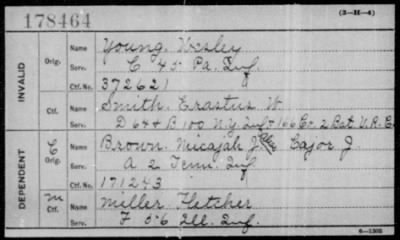 178464
(3-H-4)
INVALID
Orig.
Name Young, Wesley
Serv. C 45 Pa. Inf.
Ctf. No. 372621
Ctf.
Name Smith, Erastus W
Serv. D 64 & B 100 N.Y. Inf & 166 Co. 2 Bat. V.R.C.
DEPENDENT
C
Orig.
Name Brown, Micajah J. Cajor J.
Serv. A 2 Tenn. Inf
Ctf. No. 171243
M
Ctf.
Name Miller Fletcher
Serv. F 56 Ill. Inf.
6—1303